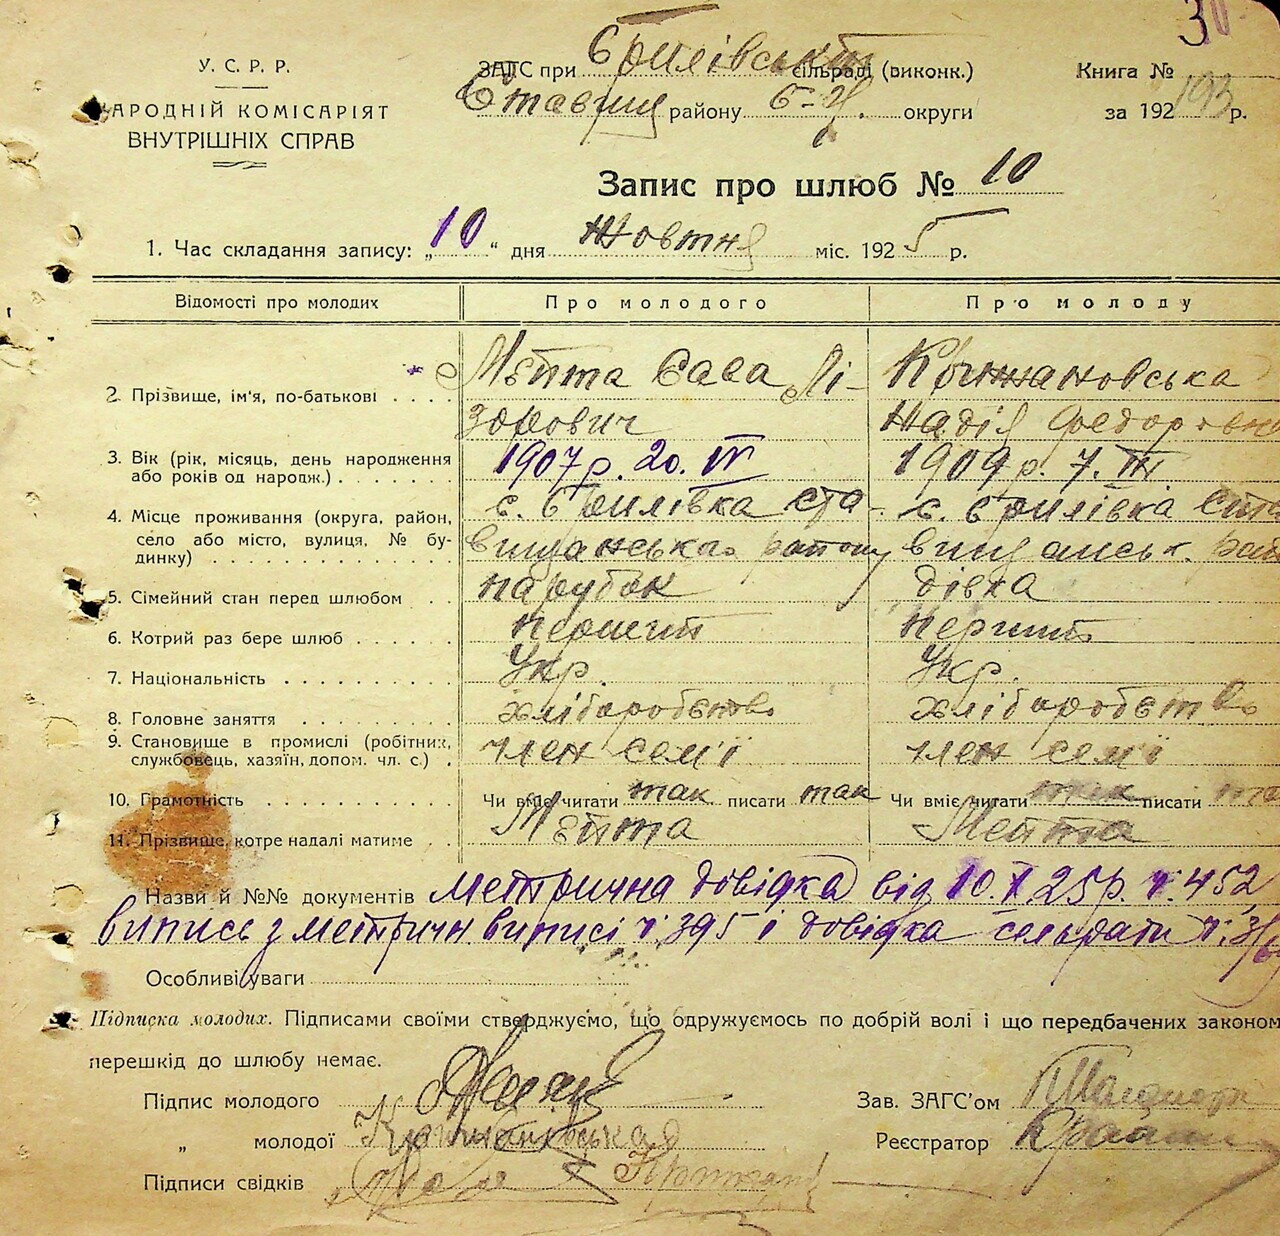 У. С. Р. Р.
НАРОДНІЙ КОМІСАРІЯТ
ВНУТРІШНІХ СПРАВ
ЗАГС при Брилівській сільраді (виконк.)
Ставищ району Б-Ц. округи
Книга №
за 192 р.
Запис про шлюб № 10
1. Час складання запису: „10“ дня Жовтня міс. 1925 р.
Відомості про молодих Про молодого Про молоду
2. Прізвище, ім'я, по-батькові
Сава Лі-
зорович
Крижановська
Надія Федоровна
3. Вік (рік, місяць, день народження
або років од народж.)
1907 р. 20. IV
1909 р. 7. III
4. Місце проживання (округа, район,
село або місто, вулиця, № бу-
динку)
с. Брилівка Ста-
вищанського району
с. Брилівка Ста
вищанськ. рай
5. Сімейний стан перед шлюбом парубок дівка
6. Котрий раз бере шлюб перший перший
7. Національність Укр. Укр.
8. Головне заняття хліборобство хліборобство
9. Становище в промислі (робітник,
службовець, хазяїн, допом. чл. с.)
член сем'ї член сем'ї
10. Грамотність Чи вміє читати так писати так Чи вміє читати так писати та
11. Прізвище, котре надалі матиме
Назви й №№ документів Метрична довідка від 10.X.25 р. ч. 452,
випись з метричн виписі ч. 395 і довідка сельради ч.
Особливі уваги
Підписка молодих. Підписами своїми стверджуємо, що одружуємось по добрій волі і що передбачених законом
перешкід до шлюбу немає.
Підпис молодого
„ молодої
Підписи свідків
Зав. ЗАГС'ом
Реєстратор